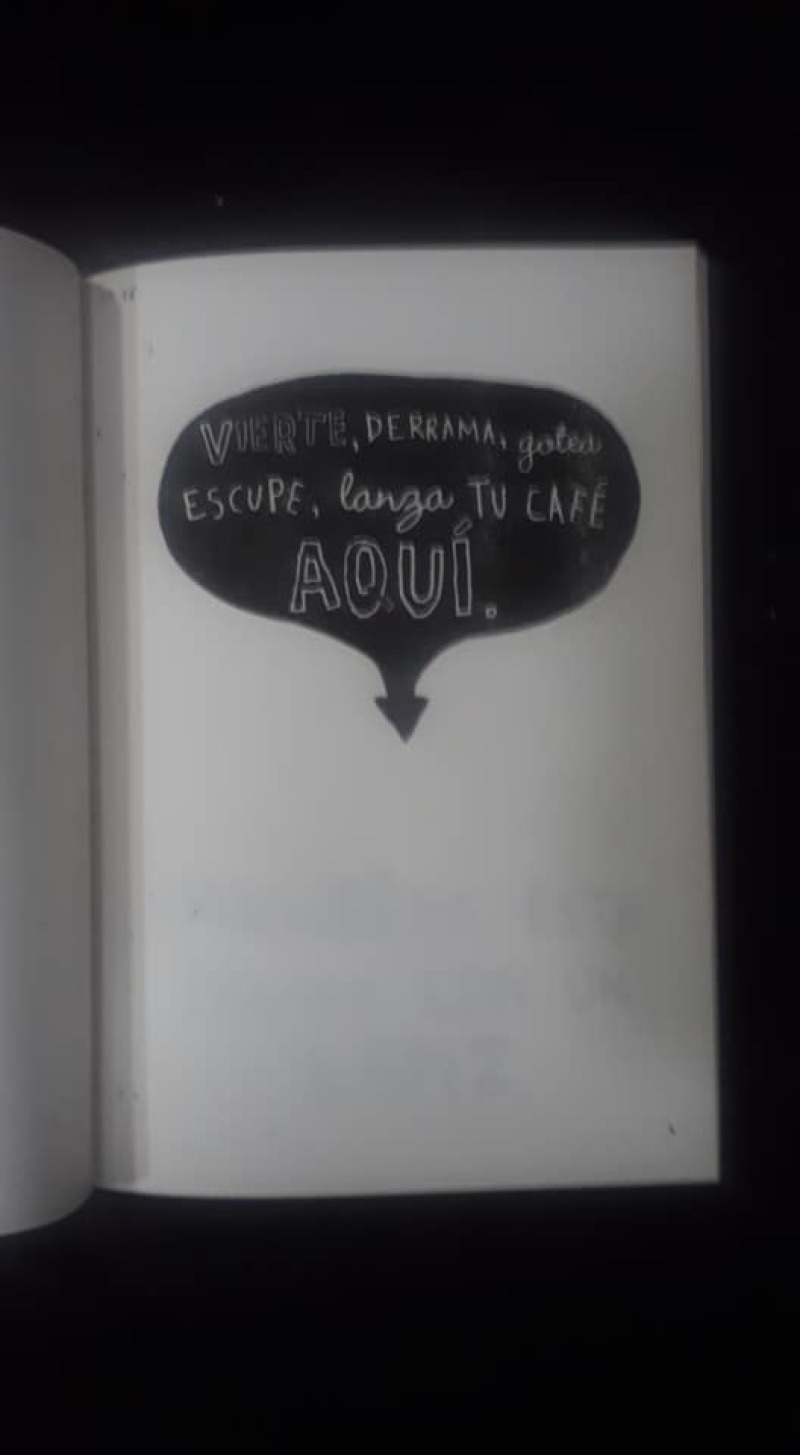 VIERTE, DERRAMA, gotea
ESCUPE, lanza TU CAFÉ
AQUÍ.